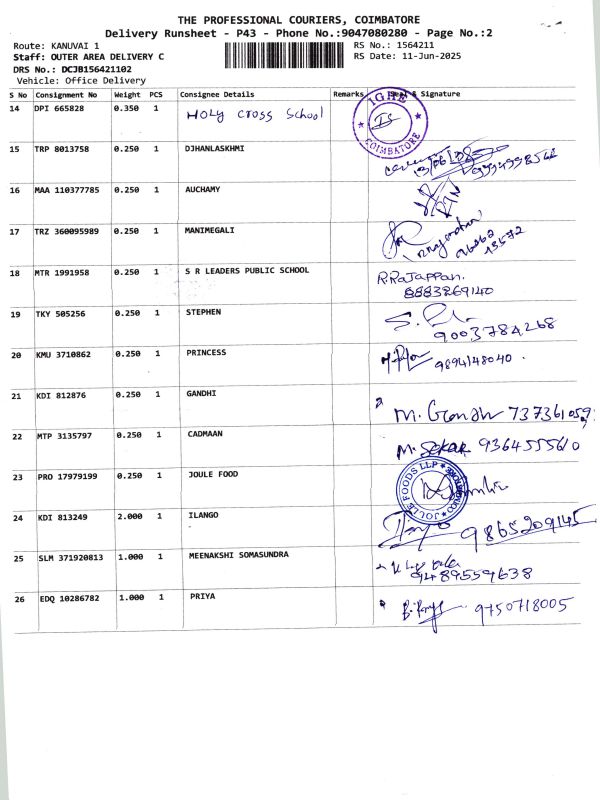 THE PROFESSIONAL COURIERS, COIMBATORE
Delivery Runsheet - P43 - Phone No.:9047080280 - Page No.:2
Route: KANUVAI 1 RS No.: 1564211
Staff: OUTER AREA DELIVERY C RS Date: 11-Jun-2025
DRS No.: DCJB156421102
Vehicle: Office Delivery
S No Consignment No Weight PCS Consignee Details Remarks & Signature
14 DPI 665828 0.350 1 HOLY CROSS School COIMBATORE
15 TRP 8013758 0.250 1 DJHANLASKHMI
16 MAA 110377785 0.250 1 AUCHAMY
17 TRZ 360095989 0.250 1 MANIMEGALI
18 MTR 1991958 0.250 1 S R LEADERS PUBLIC SCHOOL R.Rajappan.
8883269140
19 TKY 505256 0.250 1 STEPHEN
9003784268
20 KMU 3710862 0.250 1 PRINCESS 9894148040.
21 KDI 812876 0.250 1 GANDHI
22 MTP 3135797 0.250 1 CADMAAN M. Sekar 9364555610
23 PRO 17979199 0.250 1 JOULE FOOD FOODS LLP
24 KDI 813249 2.000 1 ILANGO 9865209145
25 SLM 371920813 1.000 1 MEENAKSHI SOMASUNDRA
9489559638
26 EDQ 10286782 1.000 1 PRIYA 9750718005